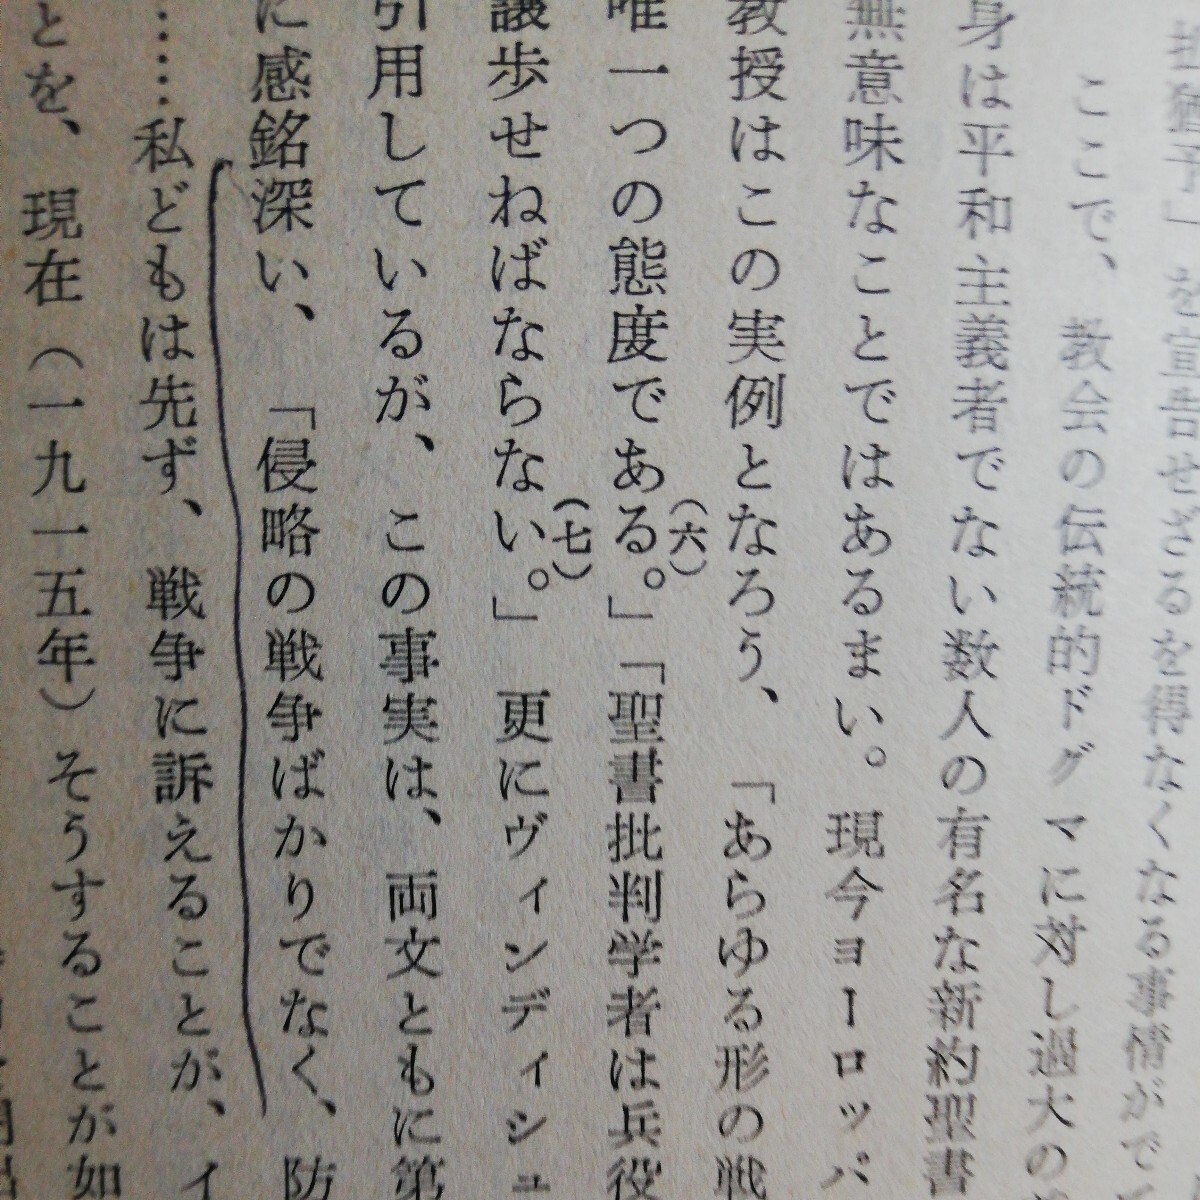 猶予」を宣告せざるを得なくなる事情がで
ここで、教会の伝統的ドグマに対し過大の
身は平和主義者でない数人の有名な新約聖書
無意味なことではあるまい。現今ヨーロッパ
教授はこの実例となろう、「あらゆる形の戦
唯一つの態度である。(六)」「聖書批判学者は兵役
譲歩せねばならない。(七)」更にヴィンディシュ
引用しているが、この事実は、両文ともに第
に感銘深い、「侵略の戦争ばかりでなく、防
……私どもは先ず、戦争に訴えることが、イ
とを、現在(一九一五年)そうすることが如